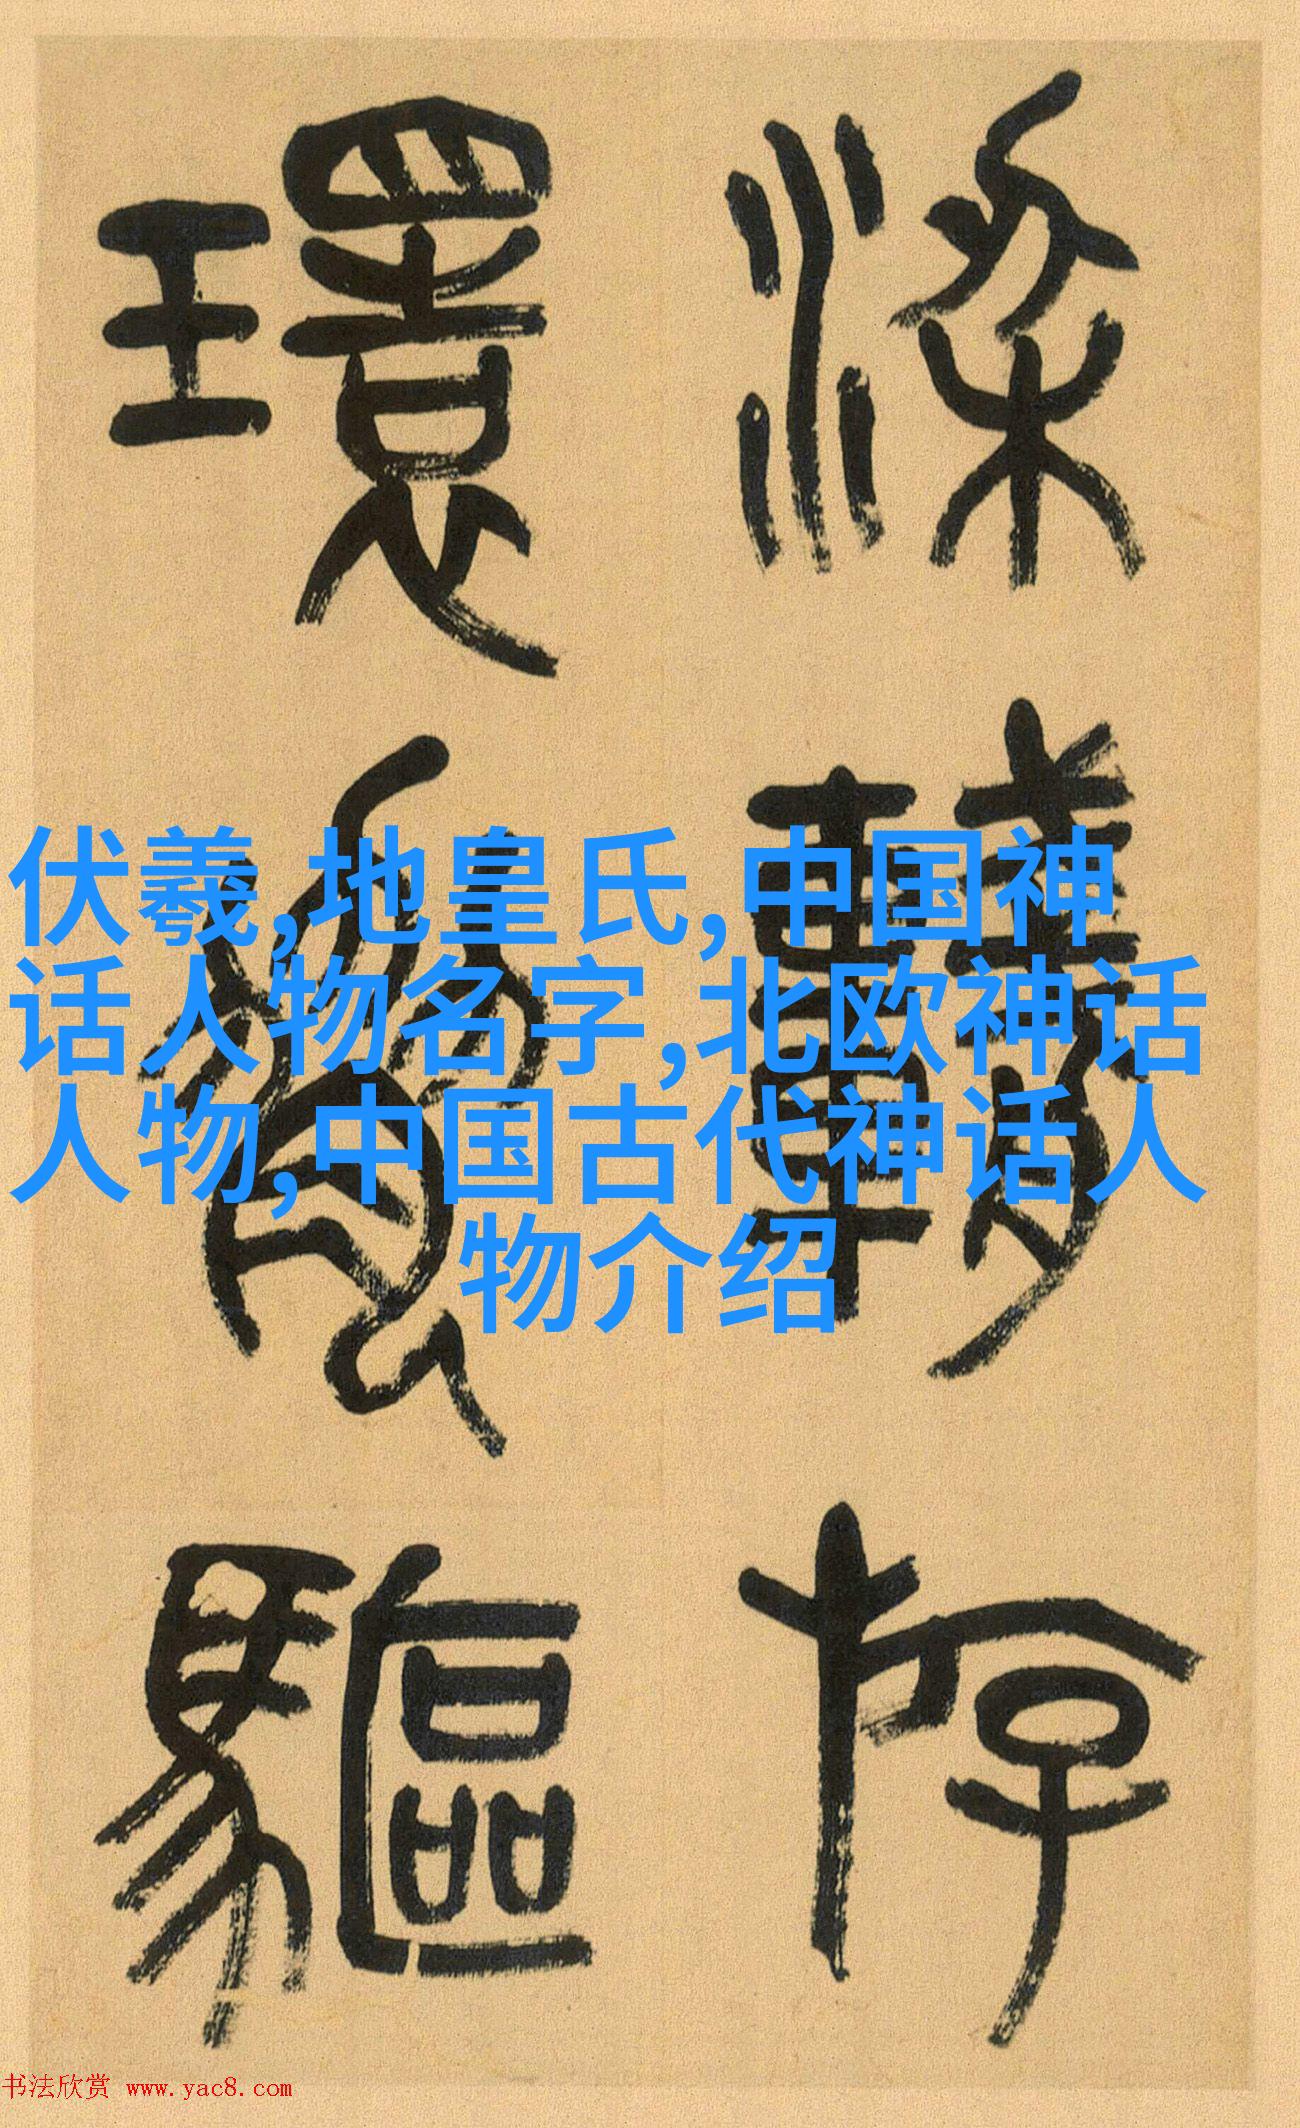 環
驅
伏羲,地皇氏,中国神
话人物名字,北欧神话
人物,中国古代神话人
物介绍
书法欣赏 www.yac8.com